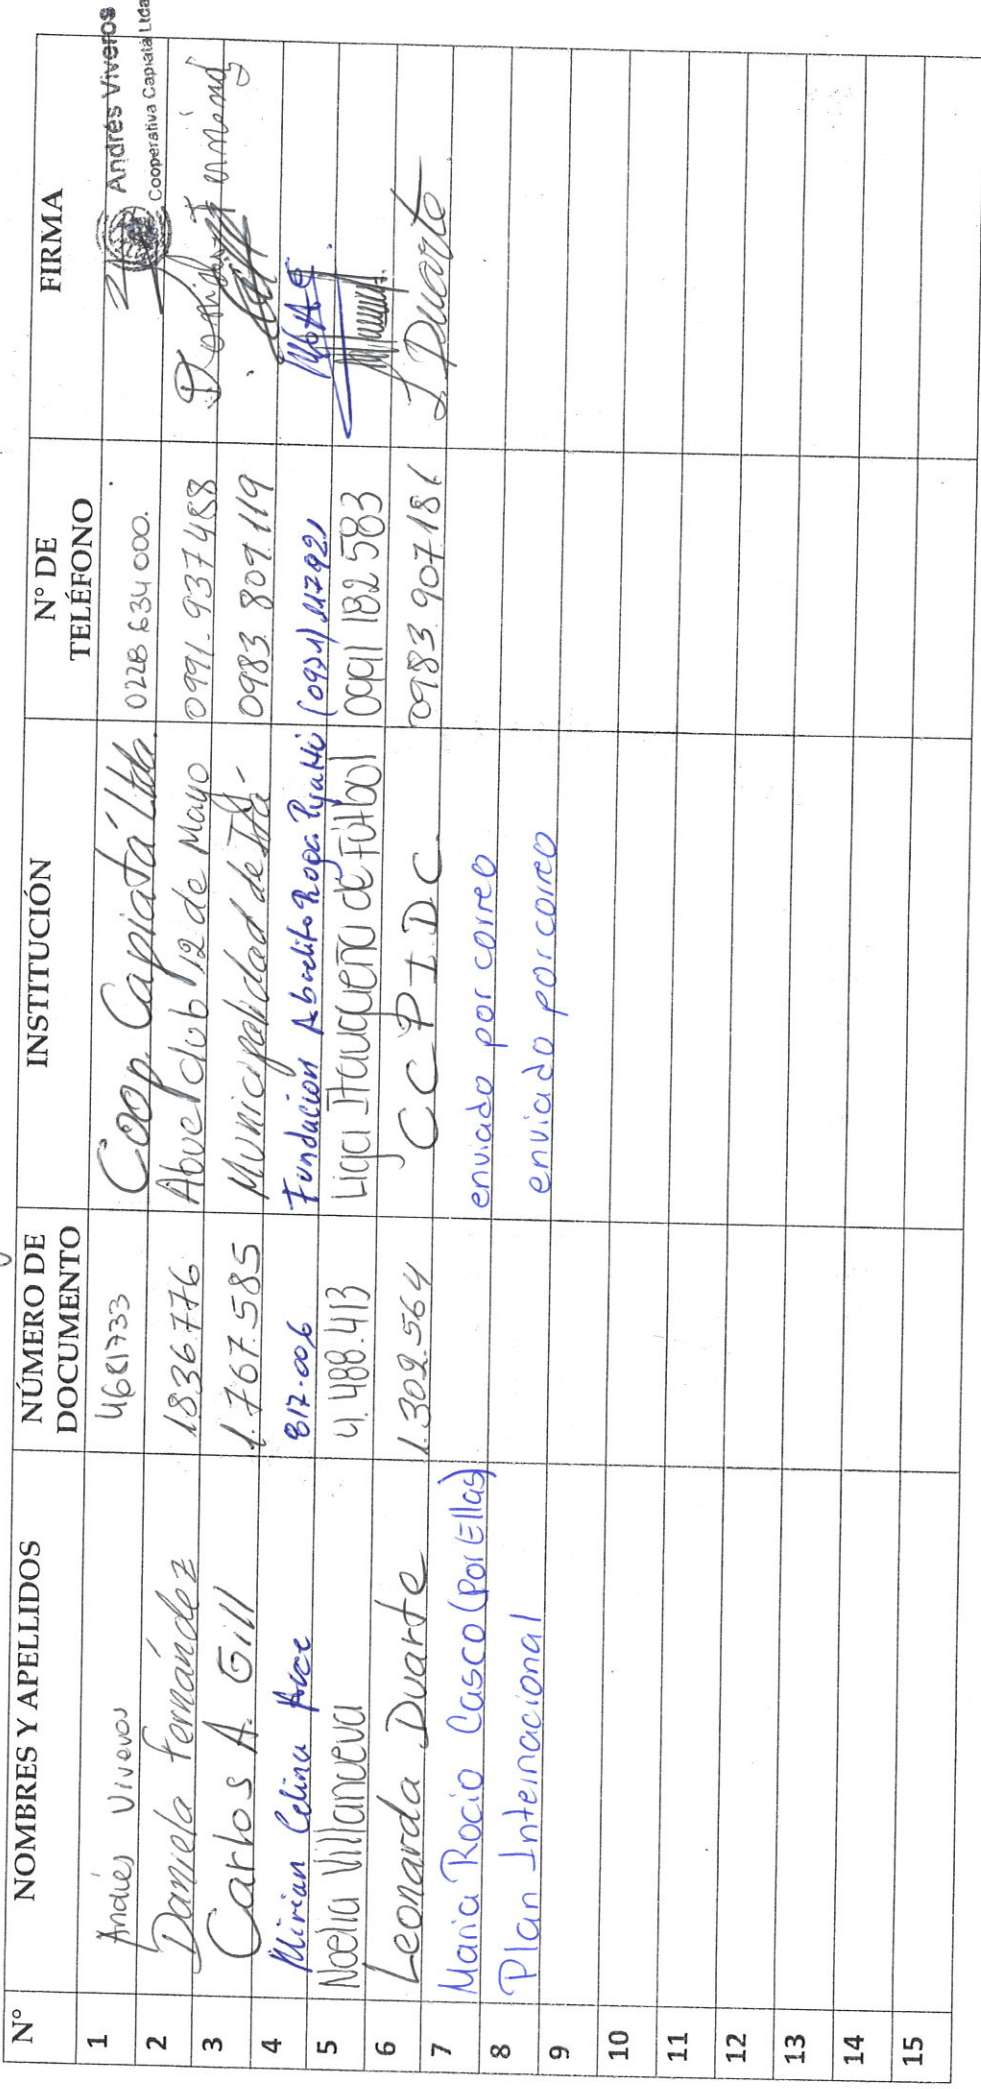 N° NOMBRES Y APELLIDOS NÚMERO DE DOCUMENTO INSTITUCIÓN N° DE TELÉFONO FIRMA
1 Andrés Viveros 4681733 Coop. Capiatá Ltda. 0228 634 000. Andrés Viveros Cooperativa Capiatá Ltda
2 Daniela Fernández 1.836.776 Abuel club 12 de Mayo 0991-937488
3 Carlos A. Gill 1.767.585 Municipalidad de Itá.- 0983 809.119
4 Mirian Celina Arce 817.006 Fundación Abuelito
5 Noelia Villanueva 4.488.413 Liga Itaugueña de Fútbol 0991 182 583
6 Leonarda Duarte 1.302.564 C C P I D C. 0983 907 186 L Duarte
7 Maria Rocio Casco (Por Ellas) enviado por correo
8 Plan Internacional enviado por correo
9
10
11
12
13
14
15